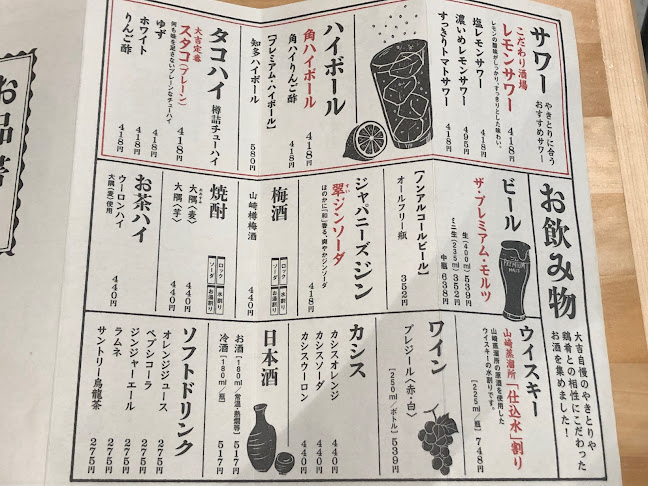 お品書
お飲み物
大吉自慢のやきとりや
鶏肴との相性にこだわった
お酒を集めました!
サワー
やきとりに合う
おすすめサワー
こだわり酒場
レモンサワー 418円
レモンの酸味がしっかり。すっきりとした味わい。
塩レモンサワー 418円
濃いめレモンサワー 495円
すっきりトマトサワー 418円
ハイボール
角ハイボール 418円
角ハイりんご酢 418円
[プレミアム・ハイボール]
知多ハイボール 580円
タコハイ 樽詰チューハイ
大吉定番
スタコ(プレーン) 418円
何も味を足さないプレーンなチューハイ
ゆず 418円
ホワイト 418円
りんご酢 418円
ビール
ザ・プレミアム・モルツ
生(400ml) 539円
ミニ生(235ml) 352円
中瓶 638円
[ノンアルコールビール]
オールフリー瓶 352円
ジャパニーズジン
翠ジンソーダ 418円
すい
ほのかに「和」香る、爽やかジンソーダ
梅酒
ロック
水割り
ソーダ
お湯割り
山崎樽梅酒 440円
焼酎
ロック
水割り
ソーダ
お湯割り
大隅〈麦〉 440円
おおすみ
大隅〈芋〉 440円
お茶ハイ
ウーロンハイ 440円
大隅〈麦〉使用
ウイスキー
山崎蒸溜所「仕込水」割り
山崎蒸溜所の原酒を使用した
ウイスキーの水割りです。
[225ml/瓶] 748円
ワイン
プレジール〈赤・白〉
[250ml/ボトル] 539円
カシス
カシスオレンジ 440円
カシスソーダ 440円
カシスウーロン 440円
日本酒
お酒[180ml/常温・熱燗等] 517円
冷酒[180ml/瓶] 517円
ソフトドリンク
オレンジジュース 275円
ペプシコーラ 275円
ジンジャーエール 275円
ラムネ 275円
サントリー烏龍茶 275円